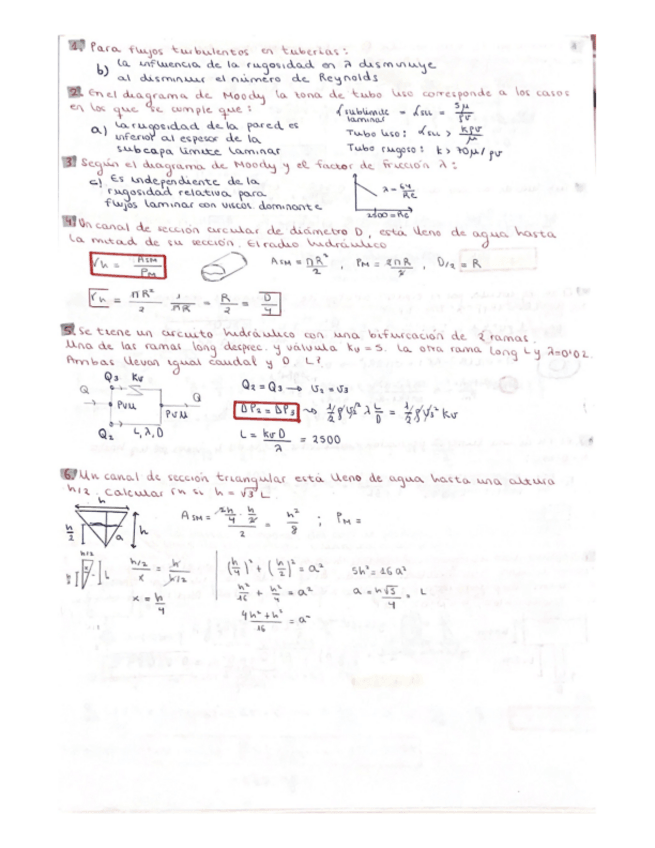 1. Para flujos turbulentos en tuberías:
b) la influencia de la rugosidad en λ disminuye
al disminuir el número de Reynolds
2. En el diagrama de Moody la zona de tubo liso corresponde a los casos
en los que se cumple que:
a) La rugosidad de la pared es
inferior al espesor de la
subcapa límite laminar
δ sublímite laminar = δsu = 5μ/ρv
Tubo liso: δsu > kρv/μ
Tubo rugoso: k > 70μ/ρv
3. Según el diagrama de Moody y el factor de fricción λ:
c) Es independiente de la
rugosidad relativa, para
flujos laminar con viscos. dominante
λ = 64/Re
2300 = Re
4. Un canal de sección circular de diámetro D, está lleno de agua hasta
la mitad de su sección. El radio hidráulico
rh = ASM/PM
ASM = πR²/2, PM = 2πR/2, D/2 = R
rh = πR²/2 · 1/πR = R/2 = D/4
5. Se tiene un circuito hidráulico con una bifurcación de 2 ramas.
Una de las ramas long desprec. y válvula kv = 5. La otra rama long L y λ=0'02.
Ambas llevan igual caudal y D. L?
Q3 kv
Q
Q
Q2 L, λ, D
Q2 = Q3 → v2 = v3
ΔP2 = ΔP3 → 1/2 ρ v2² λ L/D = 1/2 ρ v3² kv
L = kv D/λ = 2500
6. Un canal de sección triangular está lleno de agua hasta una altura
h/2. Calcular rh si h = √3 L.
h
h/2
a
h
ASM = (2h/4 · h/2)/2 = h²/8 ; PM =
h/2
h
(h/2)/x = h/(h/2)
x = h/4
(h/4)² + (h/2)² = a²
h²/16 + h²/4 = a²
(4h²+h²)/16 = a²
5h² = 16a²
a = h√5/4 = L